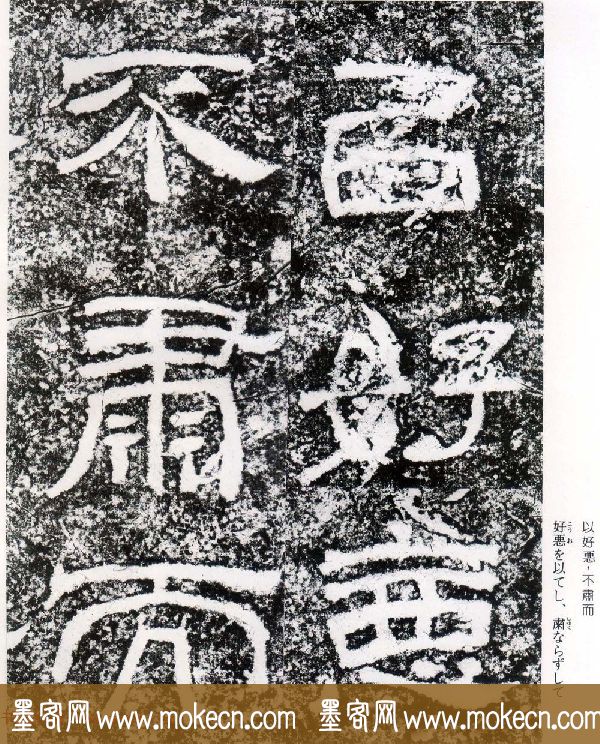 以好悪・不肅而
好悪を以てし、肅ならずして
㠯好惡
不肅而
墨客网 www.mokecn.com 墨客网 www.mokecn.com